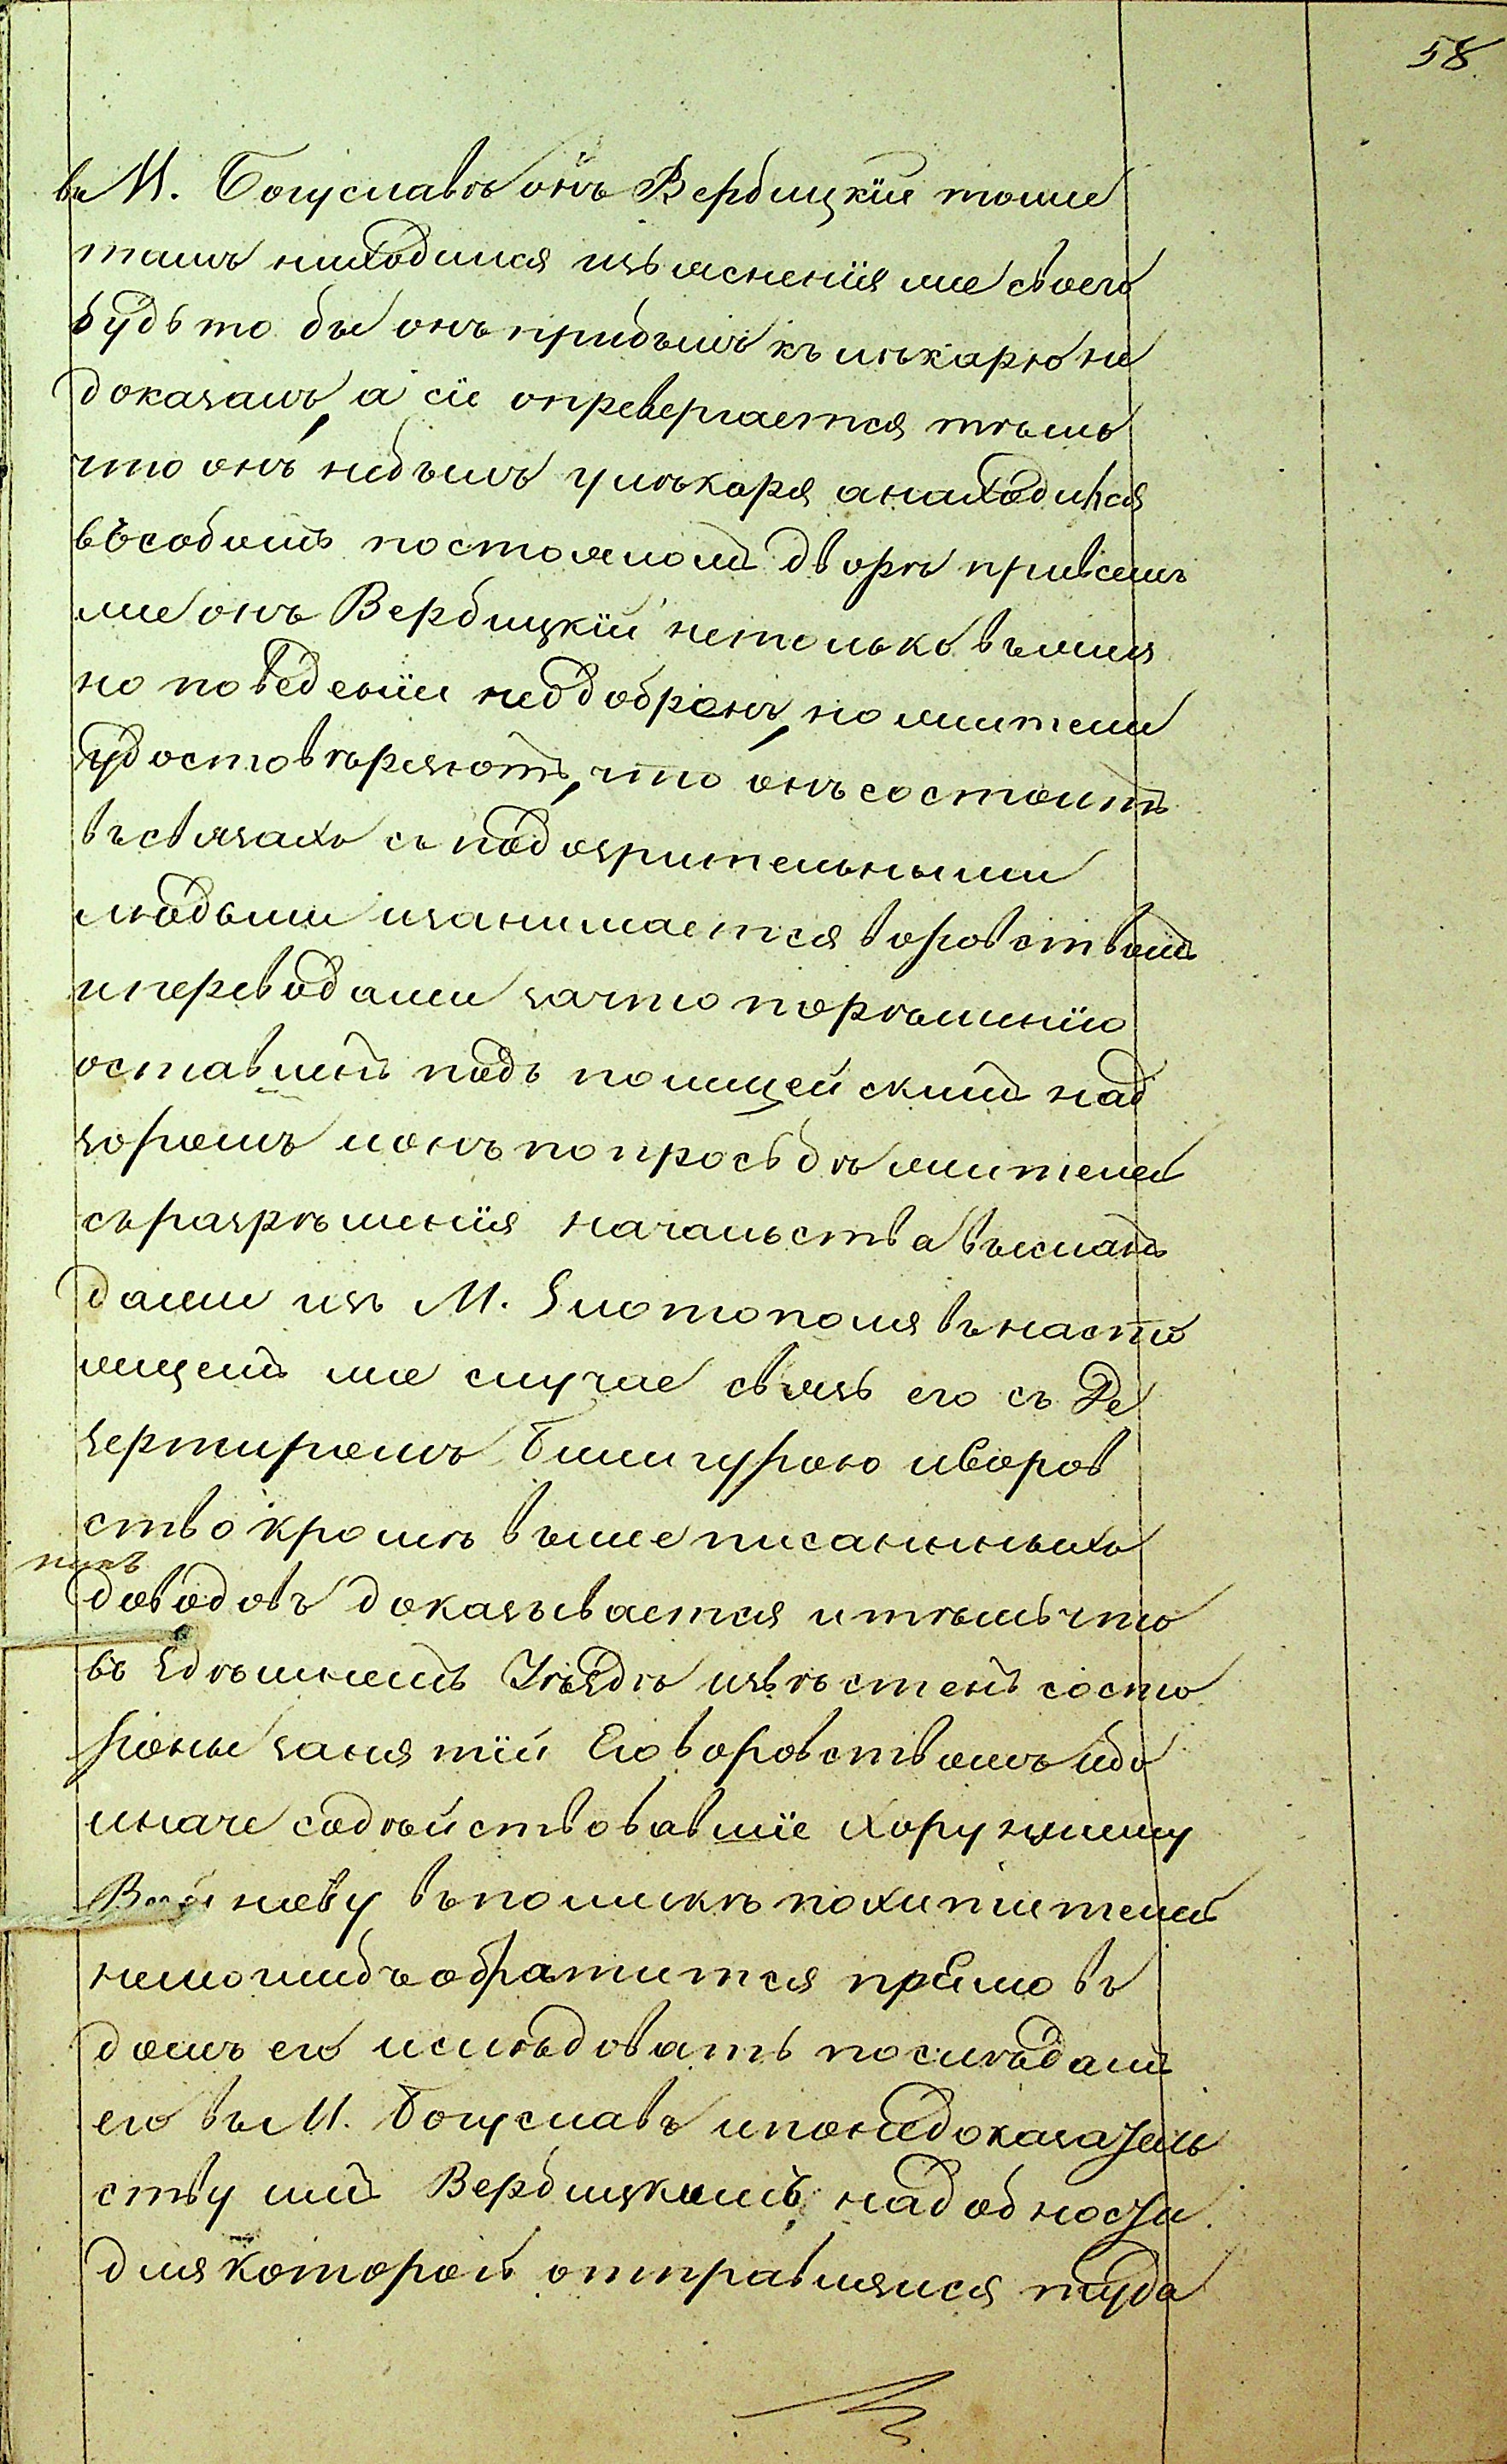 58
въ М. Богуславѣ онъ Вербицкій тоже
тамъ находился изъясненія же своего
будьто бы онъ прибылъ къ лѣкарю не
доказалъ, а сіе опревергается тѣмъ
что онъ небылъ у лѣкаря анаходился
въ особомъ постояломъ дворѣ привсемъ
же онъ Вербицкій нетолько
но поведеніи неодобренъ, но жители
удостовѣряютъ, что онъ состоитъ
въ связахъ съ подозрительными
людьми изанимается воровствомъ
ипереводами зачто порѣшенію
оставленъ подъ полицейскимъ над
зоромъ ионъ попросьбѣ жителей
съразрѣшенія начальства высланъ
даже изъ М. Златополя въ насто
ящемъ же случае связь его съ Де
зертиромъ Бжигурою иворов
ство кромѣ вышеписанныхъ
доводовъ доказывается итѣмъ что
въ здѣшнемъ Уѣздѣ извѣстенъ состо
роны занятій Его воровствомъ ибо
иначе содѣйствовавшіе Хорунжему
Войнову въпоимкѣ похитителей
немоглибъ обратится прямо въ
домъ его ислѣдовать послѣдамъ
его въ М. Богуславъ ипонедоказатель
ству имъ Вербицкимъ надобности
для которой отправлялся туда